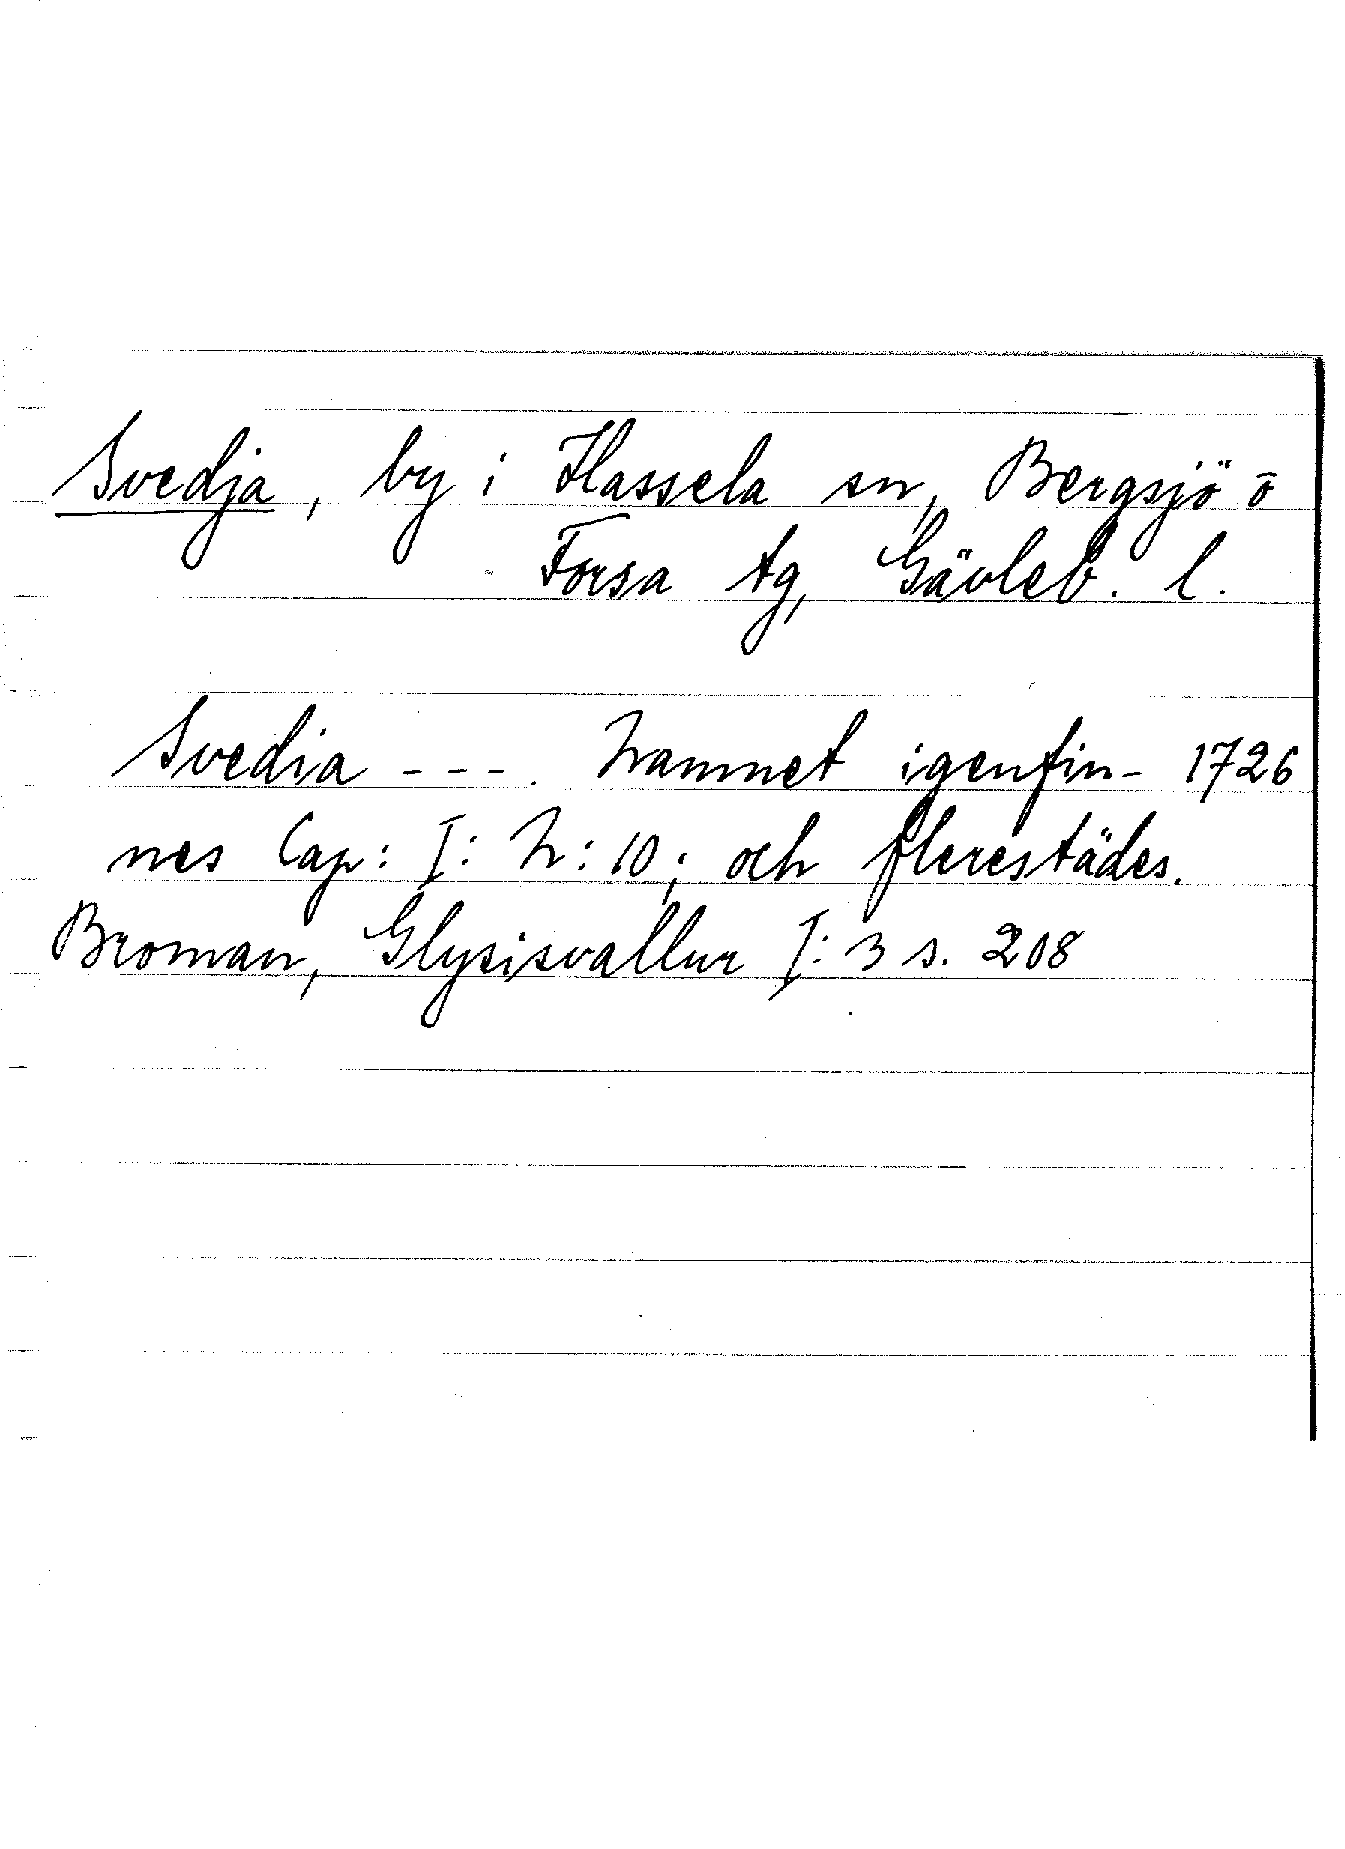 Svedja, by i Hassela sn, Bergsjö o
Forsa tg, Gävleb. l.
Svedia ---. Namnet igenfin- 1726
nes Cap: I: N: 10; och flerestädes.
Broman, Glysisvallur I: 3 s. 208